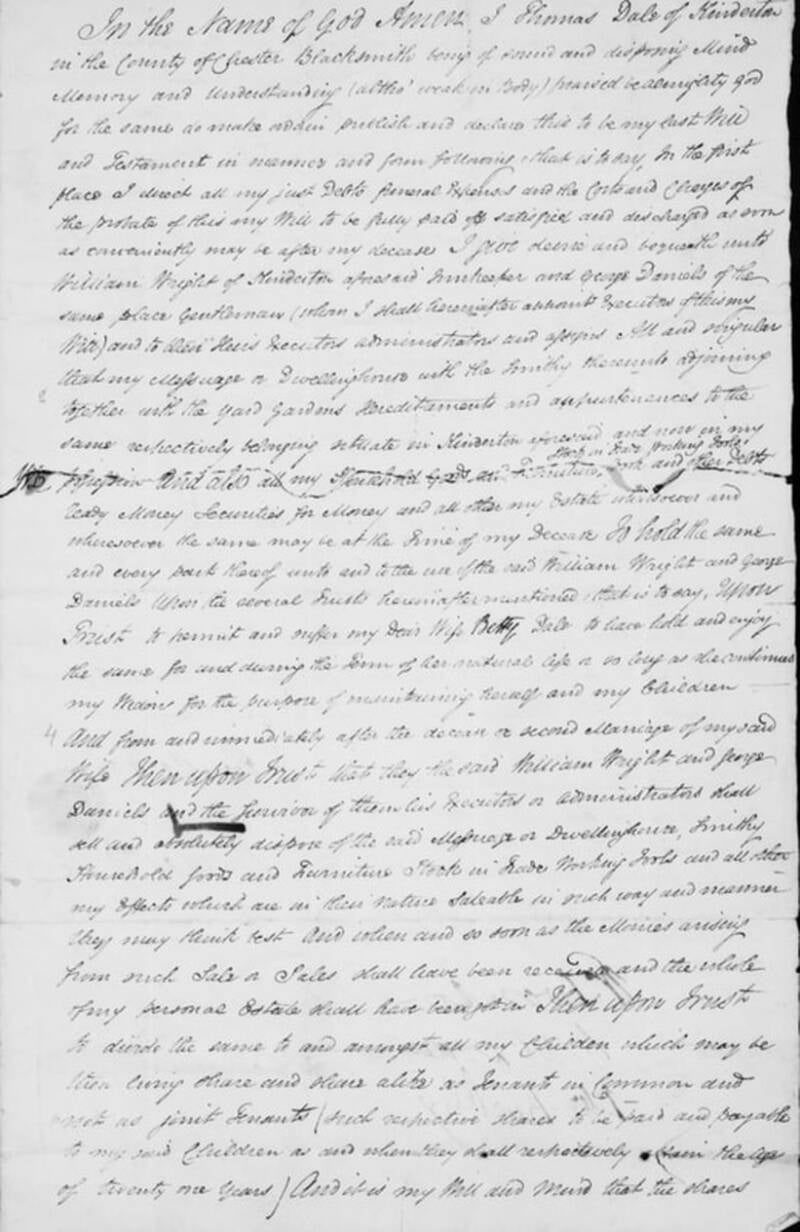 In the Name of God Amen I Thomas Dale of Kinderton
in the County of Chester Blacksmith being of sound and disposing Mind
Memory and Understanding (altho' weak in Body) praised be almighty God
for the same do make ordain publish and declare this to be my last Will
and Testament in manner and form following that is to say, In the first
place I direct all my just Debts funeral Expenses and the Costs and Charges of
the probate of this my Will to be fully paid satisfied and discharged as soon
as conveniently may be after my decease I give devise and bequeath unto
William Wright of Kinderton aforesaid Innkeeper and George Daniels of the
same place Gentleman (whom I shall hereinafter appoint Executors of this my
Will) and to their Heirs Executors administrators and assigns All and singular
that my Messuage or Dwellinghouse with the Smithy thereunto adjoining
together with the Yard Gardens Hereditaments and appurtenances to the
same respectively belonging situate in Kinderton aforesaid and now in my
Stock in Trade Working Tools
possession And also all my Household Goods and Furniture, Book and other Debts
ready Money Securities for Money and all other my Estate whatsoever and
wheresoever the same may be at the Time of my Decease To hold the same
and every part thereof unto and to the use of the said William Wright and George
Daniels Upon the several Trusts hereinafter mentioned that is to say, Upon
Trust to permit and suffer my Dear Wife Betty Dale to have hold and enjoy
the same for and during the Term of her natural life or so long as she continues
my Widow for the purpose of maintaining herself and my Children
And from and immediately after the decease or second Marriage of my said
Wife Then upon Trust that they the said William Wright and George
Daniels and the survivor of them his Executors or Administrators shall
sell and absolutely dispose of the said Messuage or Dwellinghouse, Smithy
Household Goods and Furniture Stock in Trade Working Tools and all other
my Effects which are in their nature Saleable in such way and manner
they may think best And when and so soon as the Monies arising
from such Sale or Sales shall have been received and the whole
of my personal Estate shall have been got in Then upon Trust
to divide the same to and amongst all my Children which may be
then living share and share alike as Tenants in Common and
not as joint Tenants (such respective shares to be paid and payable
to my said Children as and when they shall respectively attain the Age
of twenty one Years) And it is my Will and Mind that the shares